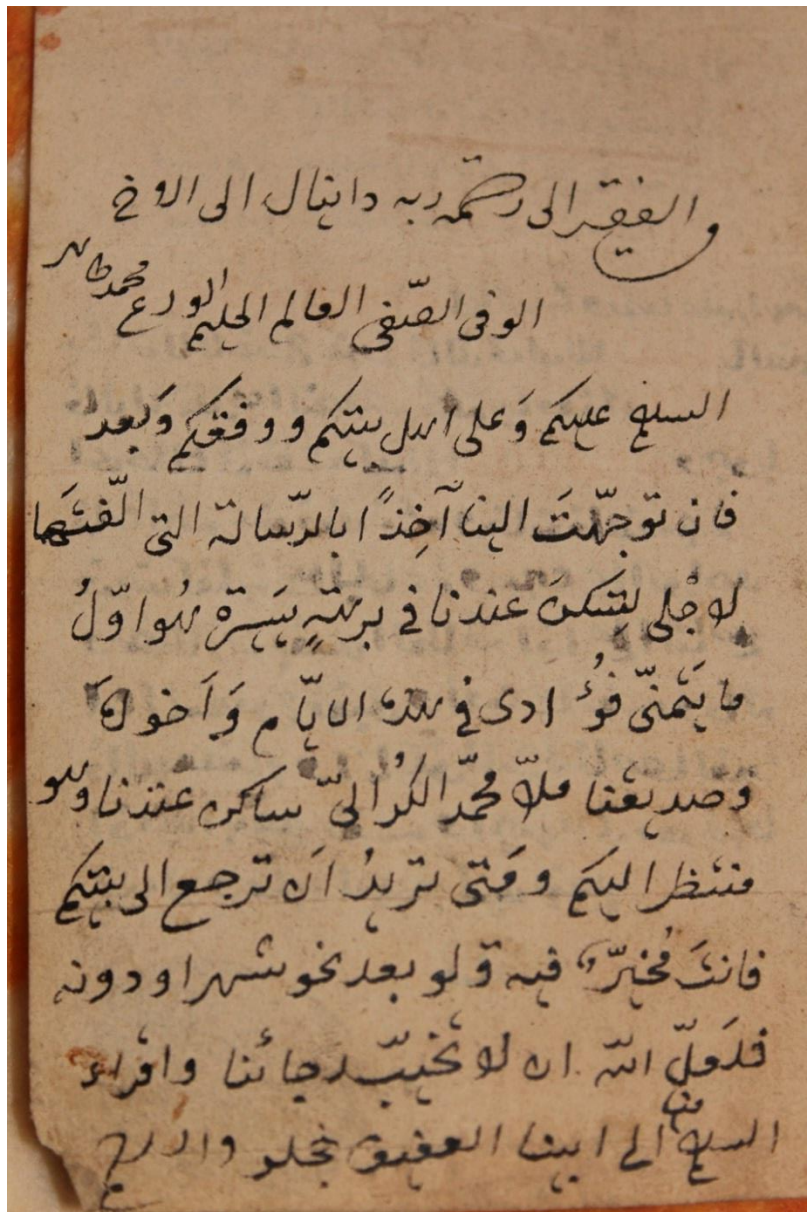 من الفقير الى رحمة ربه دانيال الى الاخ
الوفى الصّفى العالم الحليم الورع محمد طاهر
السلام عليكم وَعلى اهل بيتكم ووفقكم وَبعد
فان توجّهتَ الينا آخِذًا بالرّسالة التى الّفتَها
لاجْلى لِتَسكنَ عندنا فى برهةٍ يَسيرة هُو اوّلُ
ما يَتَمنّى فُؤادى فى هذه الايّام وَاَخوك
وصديقنا ملاّ محمّد الكُرالىّ ساكن عندنا وهو
منتظر اليكم ومَتى تريدُ اَن ترجع الى بيتكم
فانتَ مُخيّرٌ فيه ولو بعد نحو شهر او دونه
فلَعَلّ الله ان لا يُخيّبَ رجائنا واقراء
السلام منا الى ابينا والسلام